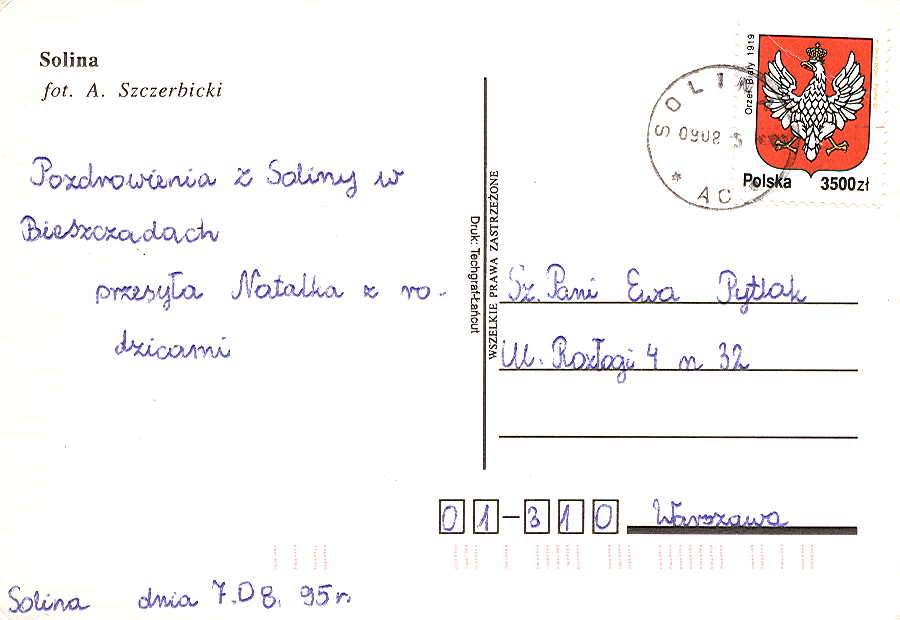 Solina
fot. A. Szczerbicki
Pozdrowienia z Soliny w
Bieszczadach
przesyła Natalka z ro-
dzicami
Solina dnia 7.08.95r.
Druk: Techgraf-Łańcut
WSZELKIE PRAWA ZASTRZEŻONE
Orzeł Biały 1919
Polska 3500zł
SOLINA
0908
* AC *
Sz. Pani Ewa Pytlak
Ul. Rozłogi 4 m 32
01-310 Warszawa